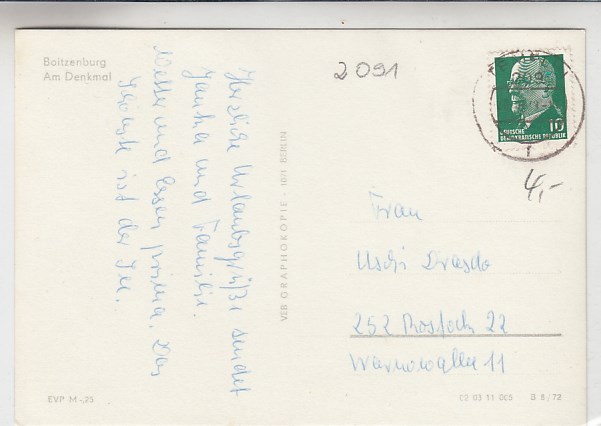 Boitzenburg
Am Denkmal
2091
Herzliche Urlaubsgrüße sendet
und Familie.
Wetter und Essen prima. Das
Schönste ist der See.
VEB GRAPHOKOPIE · 1071 BERLIN
10
DEUTSCHE
DEMOKRATISCHE REPUBLIK
4,-
Frau
Uschi Drasdo
252 Rostock 22
Warnowallee 11
EVP M -,25
02 03 11 005 B 8/72